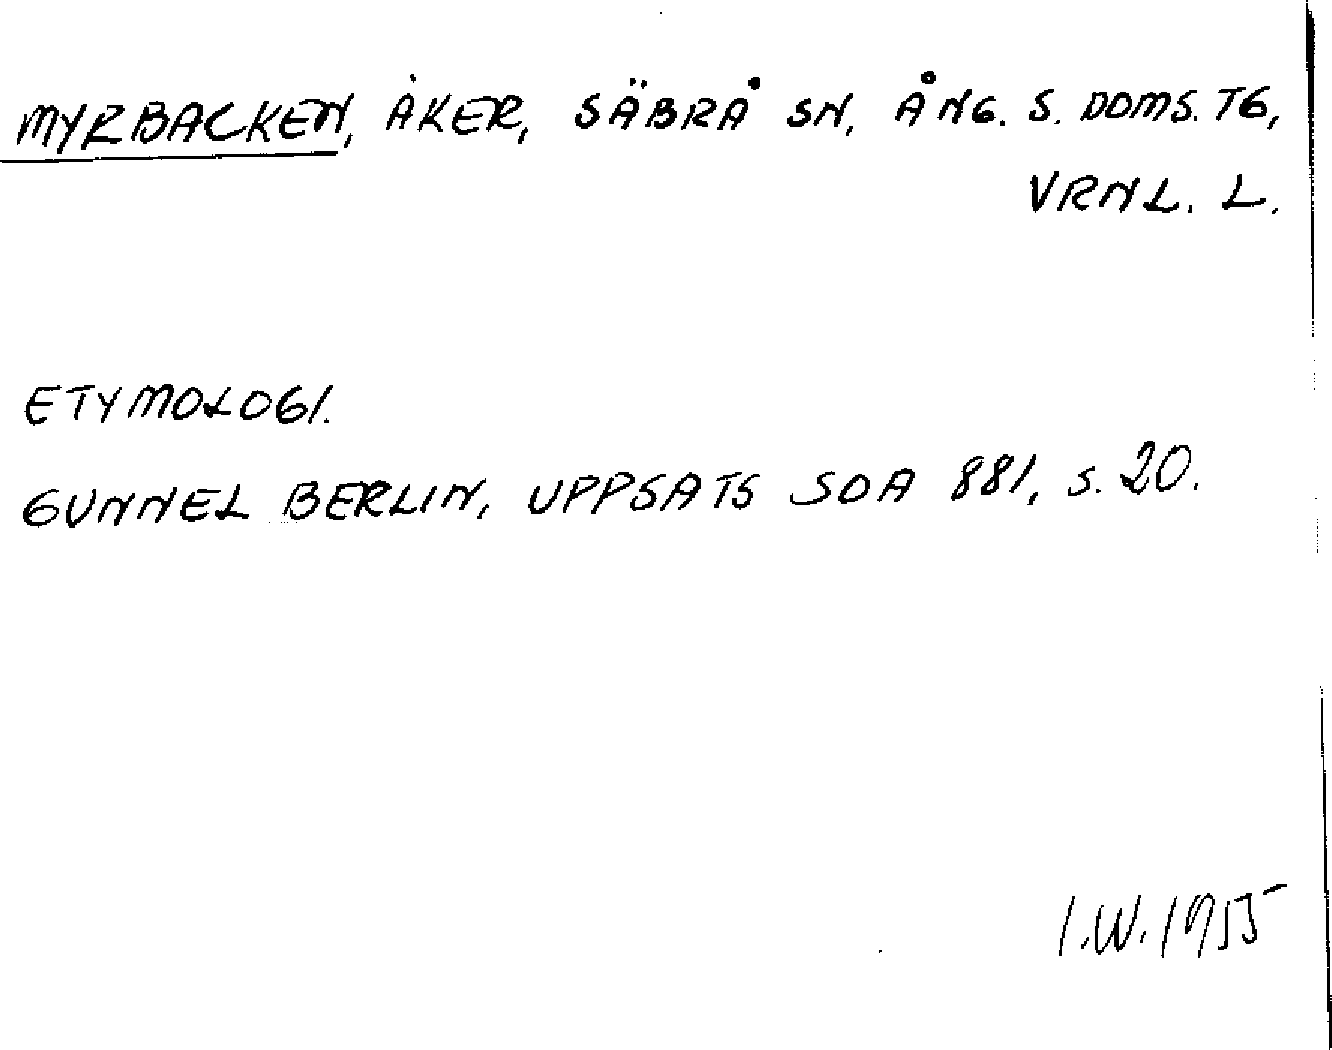 MYRBACKEN, ÅKER, SÄBRÅ SN, ÅNG. S. DOMS. TG,
VRNL. L.
ETYMOLOGI.
GUNNEL BERLIN, UPPSATS SOA 881, S. 20.
I.W. 1955